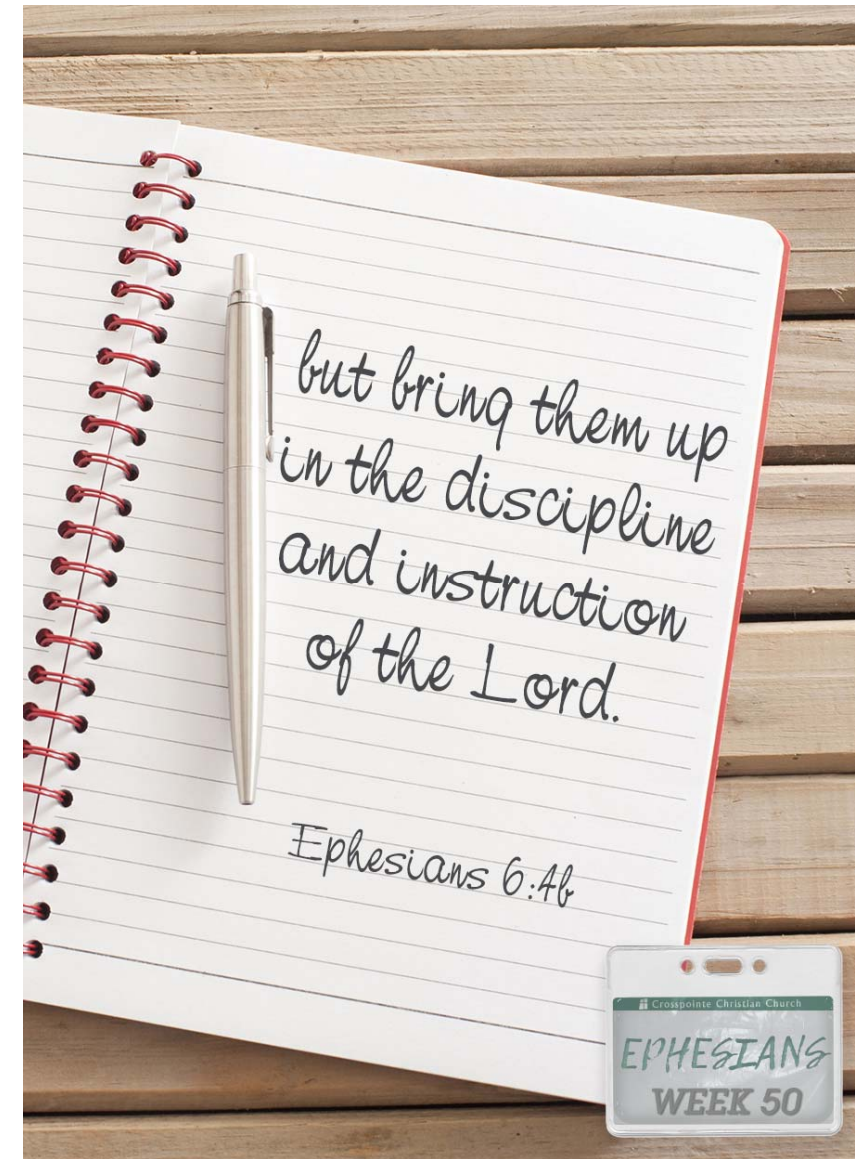 but bring them up
in the discipline
and instruction
of the Lord.
Ephesians 6:4b
Crosspointe Christian Church
EPHESIANS
WEEK 50